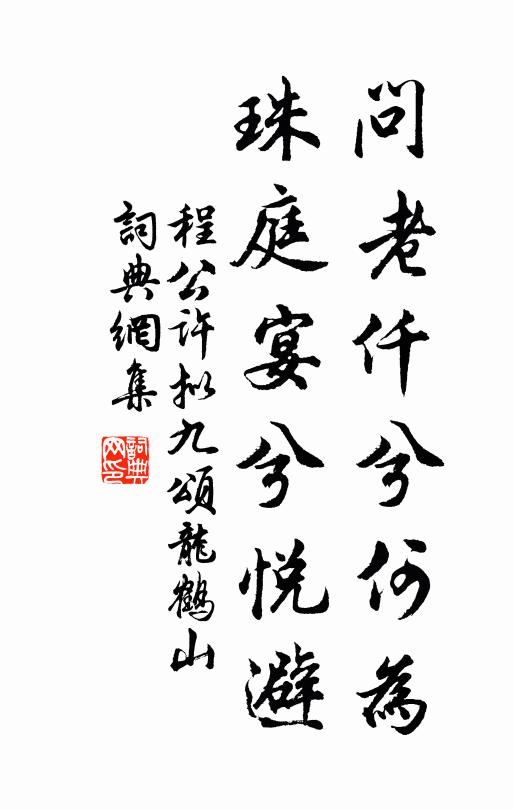 問老仟兮何為
珠庭宴兮悦避
程公許拟九頌龍鶴山
詞典網集
詞典网印